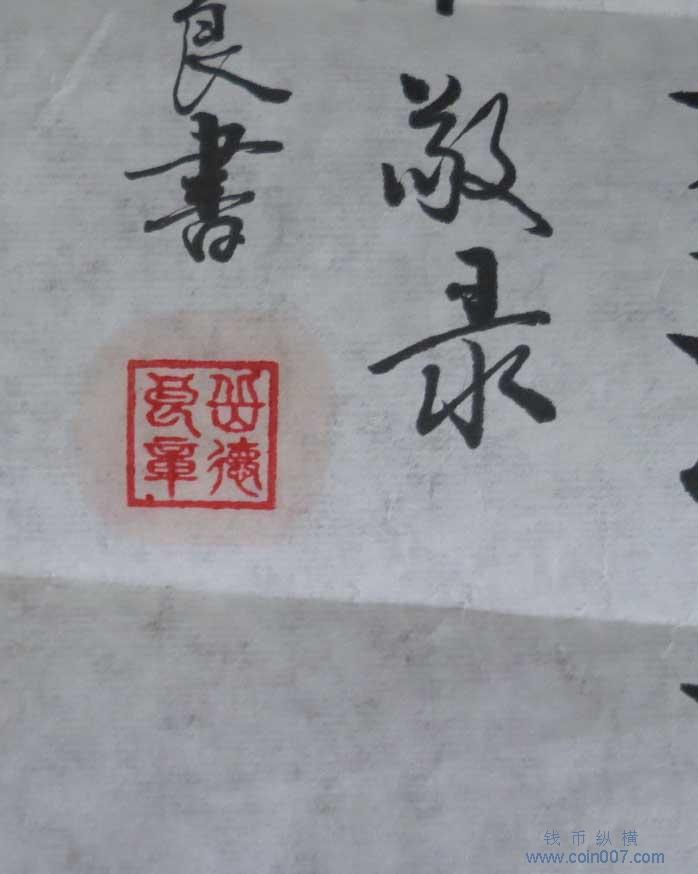 敬录
良書
岳德
良章
钱币纵横
www.coin007.com